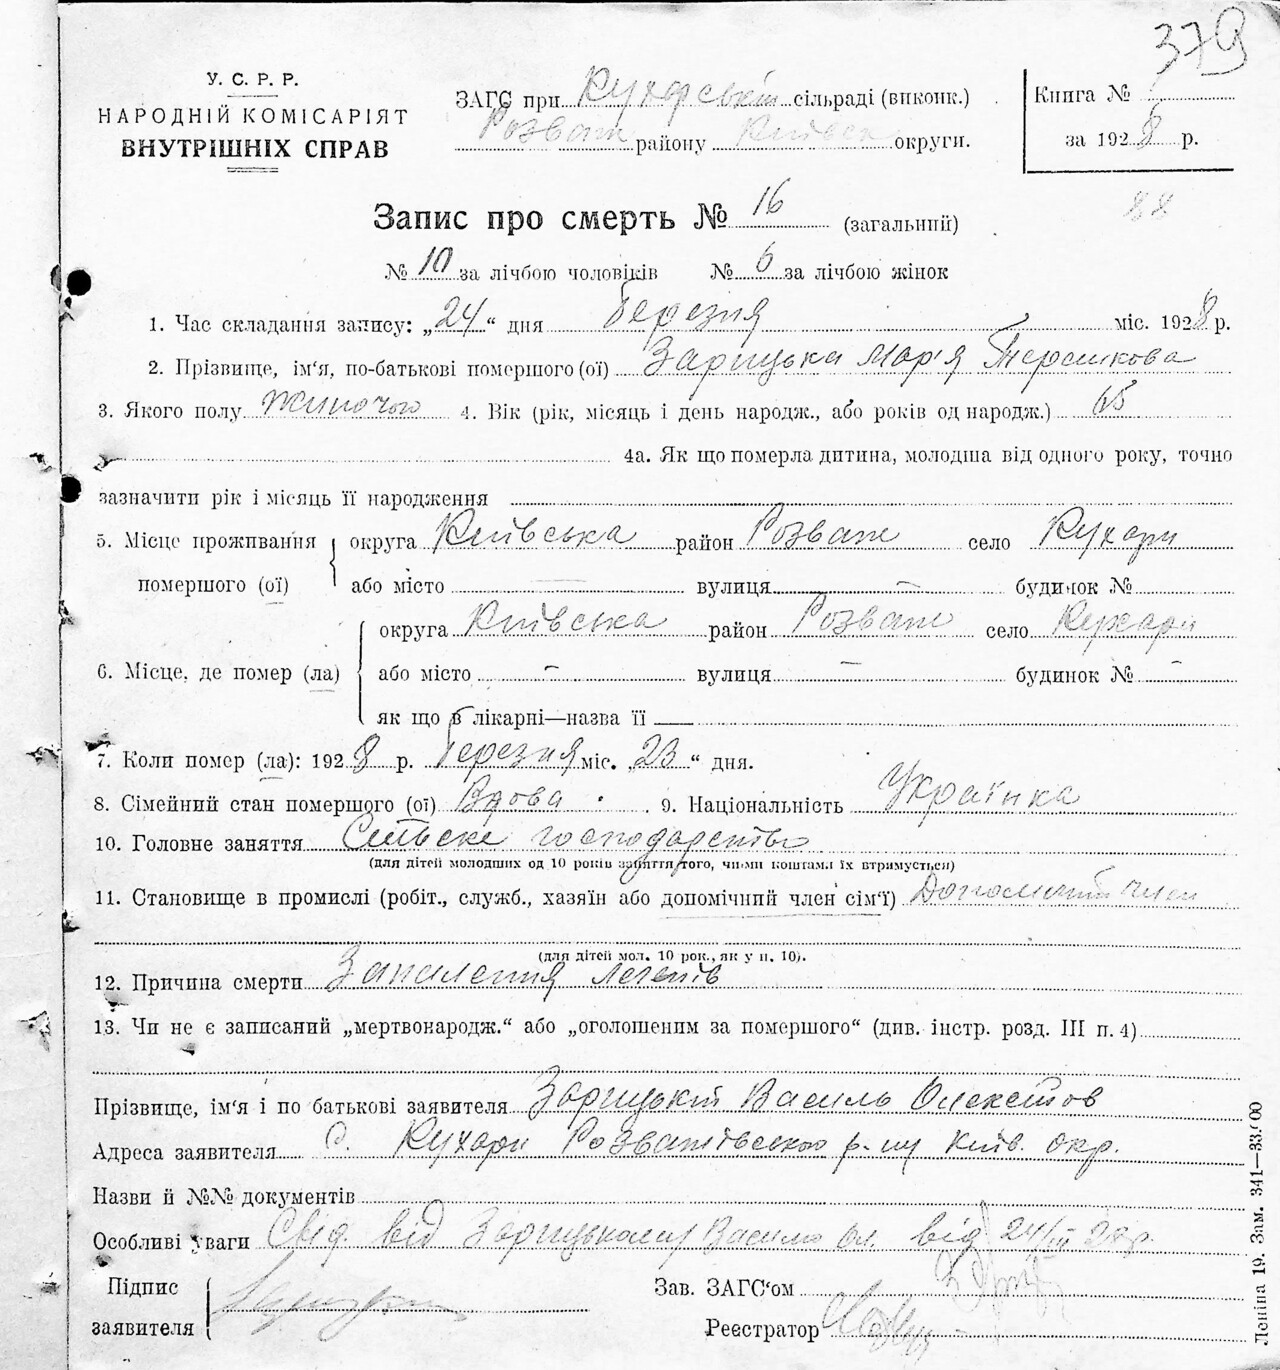 379
У. С. Р. Р.
НАРОДНІЙ КОМІСАРІЯТ
ВНУТРІШНІХ СПРАВ
ЗАГС при Кухарській сільраді (виконк.)
Розваж району Київськ округи.
Книга №
за 1928 р.
88
Запис про смерть № 16 (загальний)
№ 10 за лічбою чоловіків № 6 за лічбою жінок
1. Час складання запису: „24“ дня березня міс. 1928 р.
2. Прізвище, ім‘я, по-батькові помершого (ої) Зарицька Мар'я Терешкова
3. Якого полу жиночого 4. Вік (рік, місяць і день народж., або років од народж.) 65
4а. Як що померла дитина, молодша від одного року, точно
зазначити рік і місяць її народження
5. Місце проживання помершого (ої) округа Київська район Розваж село Кухари
або місто — вулиця — будинок №
6. Місце, де помер (ла) округа Київська район Розваж село Кухари
або місто — вулиця — будинок № —
як що в лікарні—назва її —
7. Коли помер (ла): 1928 р. березня міс. „23“ дня.
8. Сімейний стан помершого (ої) Вдова 9. Національність Українка
10. Головне заняття Сільське господарство
(для дітей молодших од 10 років заняття того, чиїми коштами їх втримується)
11. Становище в промислі (робіт., служб., хазяїн або допомічний член сім‘ї) Допоміжний член
(для дітей мол. 10 рок., як у п. 10).
12. Причина смерти Запалення легенів
13. Чи не є записаний „мертвонародж.“ або „оголошеним за помершого“ (див. інстр. розд. III п. 4)
Прізвище, ім‘я і по батькові заявителя Зарицький Василь Олексійов
Адреса заявителя С. Кухари Розважівського р-ну Київ. окр.
Назви й №№ документів
Особливі уваги Свід. від Зарицького Василя Ол. від 24/III 28 р.
Підпис заявителя
Зав. ЗАГС‘ом
Реєстратор
Леніна 19. Зам. 341—33.000